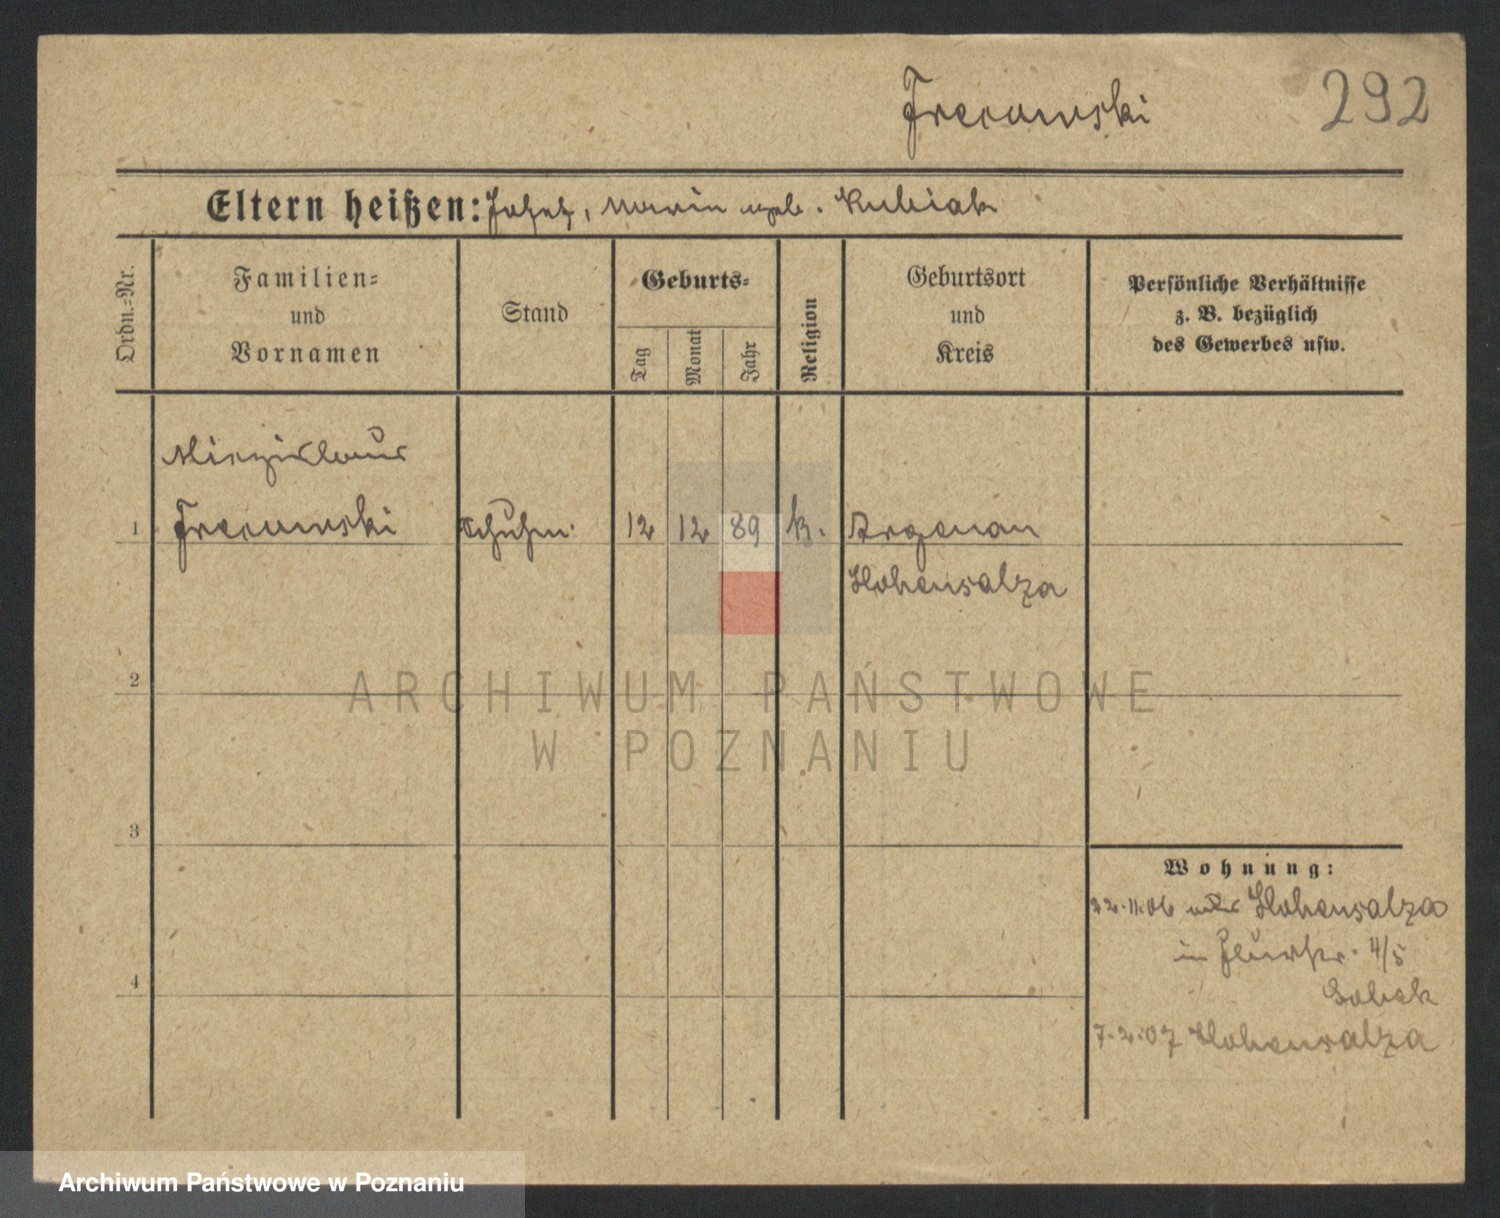 292
Eltern heißen: Josef, Marie geb. Kubiak
Ordn.-Nr.
Familien-
und
Vornamen
Stand
Geburts-
Tag
Monat
Jahr
Religion
Geburtsort
und
Kreis
Persönliche Verhältnisse
z. B. bezüglich
des Gewerbes usw.
Miezislaus
1 Schuhm. 12 12 89 k. Argenau
Hohensalza
2
3
4
Wohnung:
22.11.06 Hohensalza
in 4/5
7.2.07 Hohensalza
ARCHIWUM PAŃSTWOWE
W POZNANIU
Archiwum Państwowe w Poznaniu